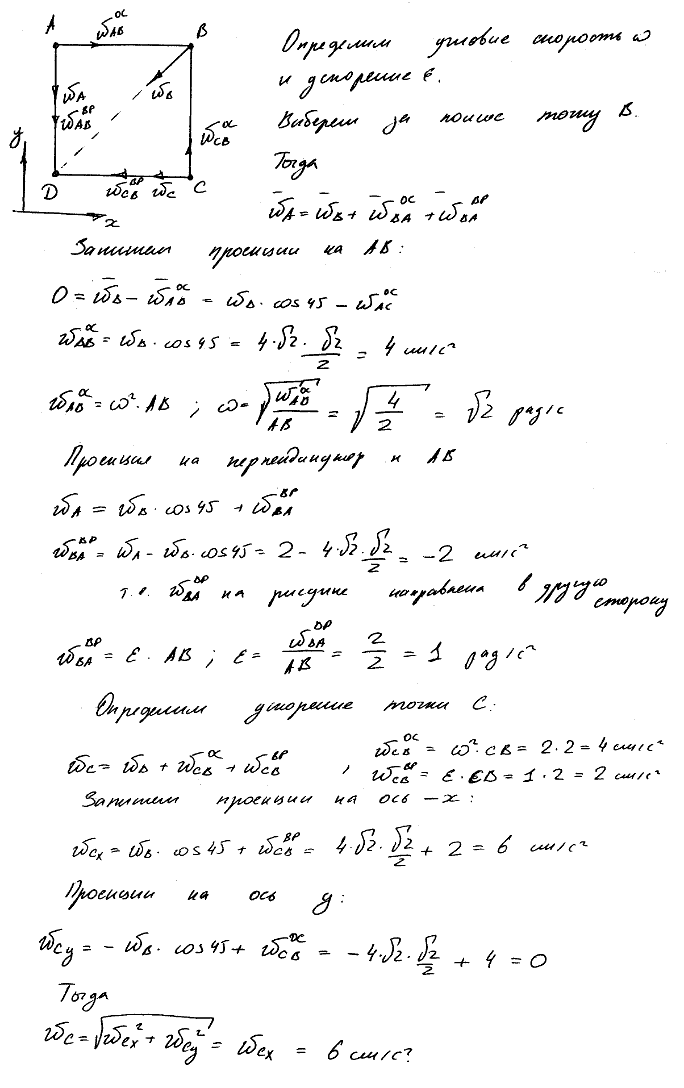 A w_AB^ос B
Определим угловые скорость ω
и ускорение ε.
w_A w_B
w_AB^вр
Выберем за полюс точку B.
y w_CB^ос
Тогда
D w_CB^вр w_C C
x
w̄_A = w̄_B + w̄_BA^ос + w̄_BA^вр
Запишем проекции на AB:
0 = w̄_B − w̄_AB^ос = w_B · cos 45 − w_AC^ос
w_BB^ос = w_B · cos 45 = 4·√2 · √2/2 = 4 см/с²
w_AB^ос = ω² · AB ; ω = √(w_AB^ос/AB) = √(4/2) = √2 рад/с
Проекция на перпендикуляр к AB
w_A = w_B · cos 45 + w_BA^вр
w_BA^вр = w_A − w_B · cos 45 = 2 − 4·√2 · √2/2 = −2 см/с²
т.е. w_BA^вр на рисунке направлена в другую
сторону
w_BA^вр = ε · AB ; ε = w_BA^вр/AB = 2/2 = 1 рад/с²
Определим ускорение точки C:
w_C = w_B + w_CB^ос + w_CB^вр , w_CB^ос = ω² · CB = 2·2 = 4 см/с²
w_CB^вр = ε · CB = 1·2 = 2 см/с²
Запишем проекции на ось −x:
w_Cx = w_B · cos 45 + w_CB^вр = 4·√2 · √2/2 + 2 = 6 см/с²
Проекции на ось y:
w_Cy = − w_B · cos 45 + w_CB^ос = −4·√2 · √2/2 + 4 = 0
Тогда
w_C = √(w_Cx² + w_Cy²) = w_Cx = 6 см/с²